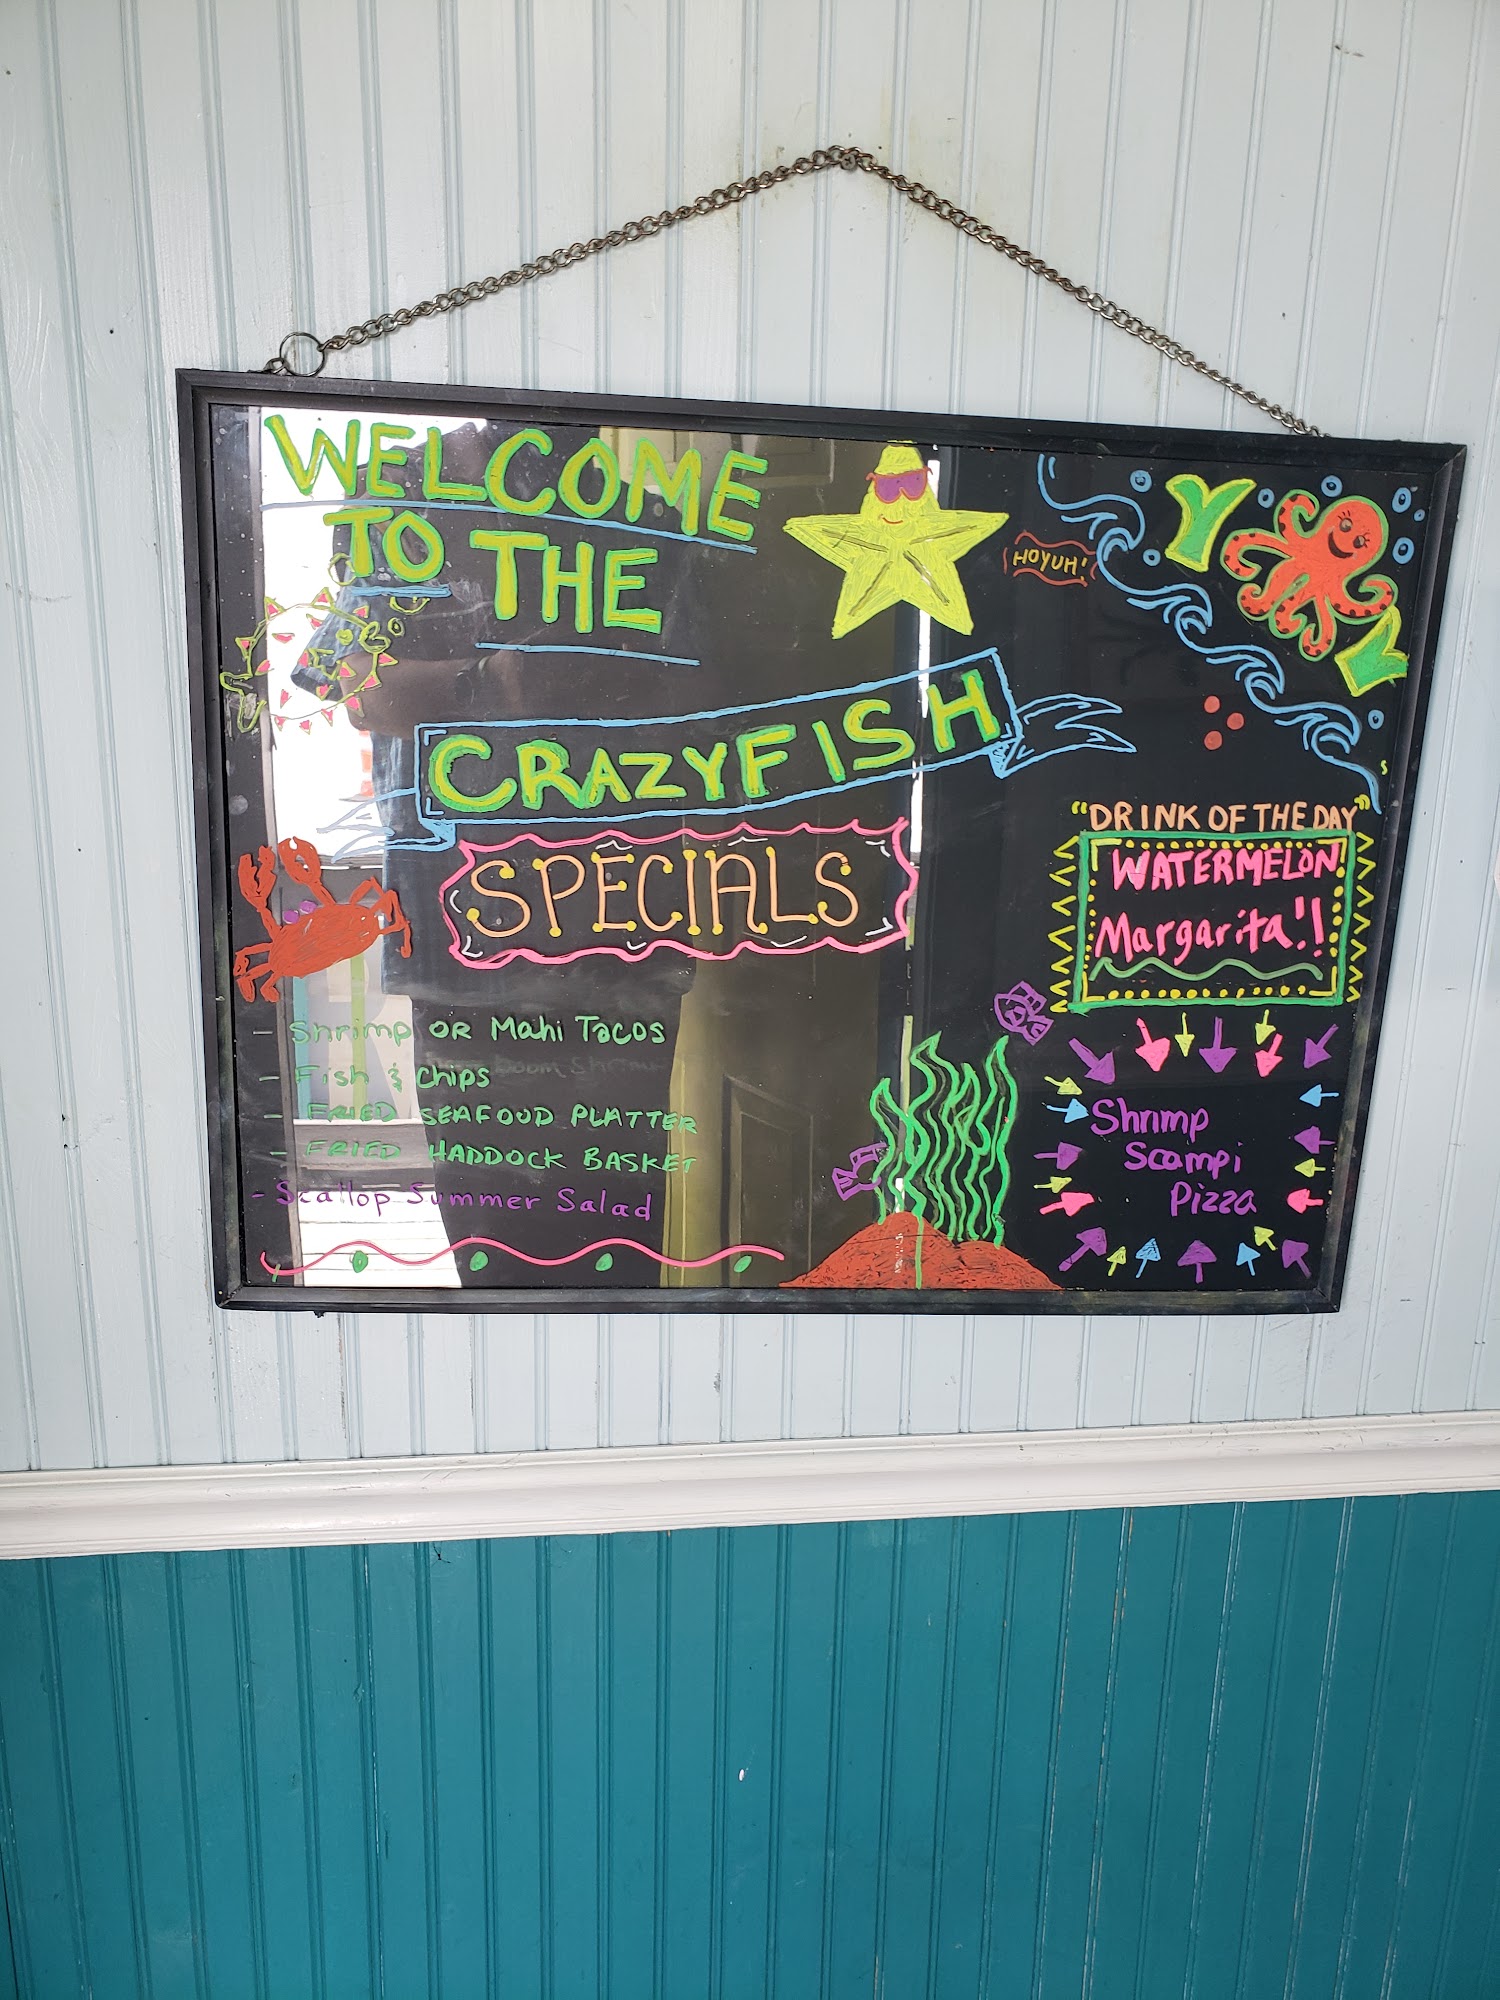 WELCOME
TO THE
HOYUH!
CRAZYFISH
SPECIALS
- Shrimp OR Mahi Tacos
- Fish & Chips
- FRIED SEAFOOD PLATTER
- FRIED HADDOCK BASKET
- Scallop Summer Salad
"DRINK OF THE DAY"
WATERMELON
Margarita!!
Shrimp
Scampi
Pizza